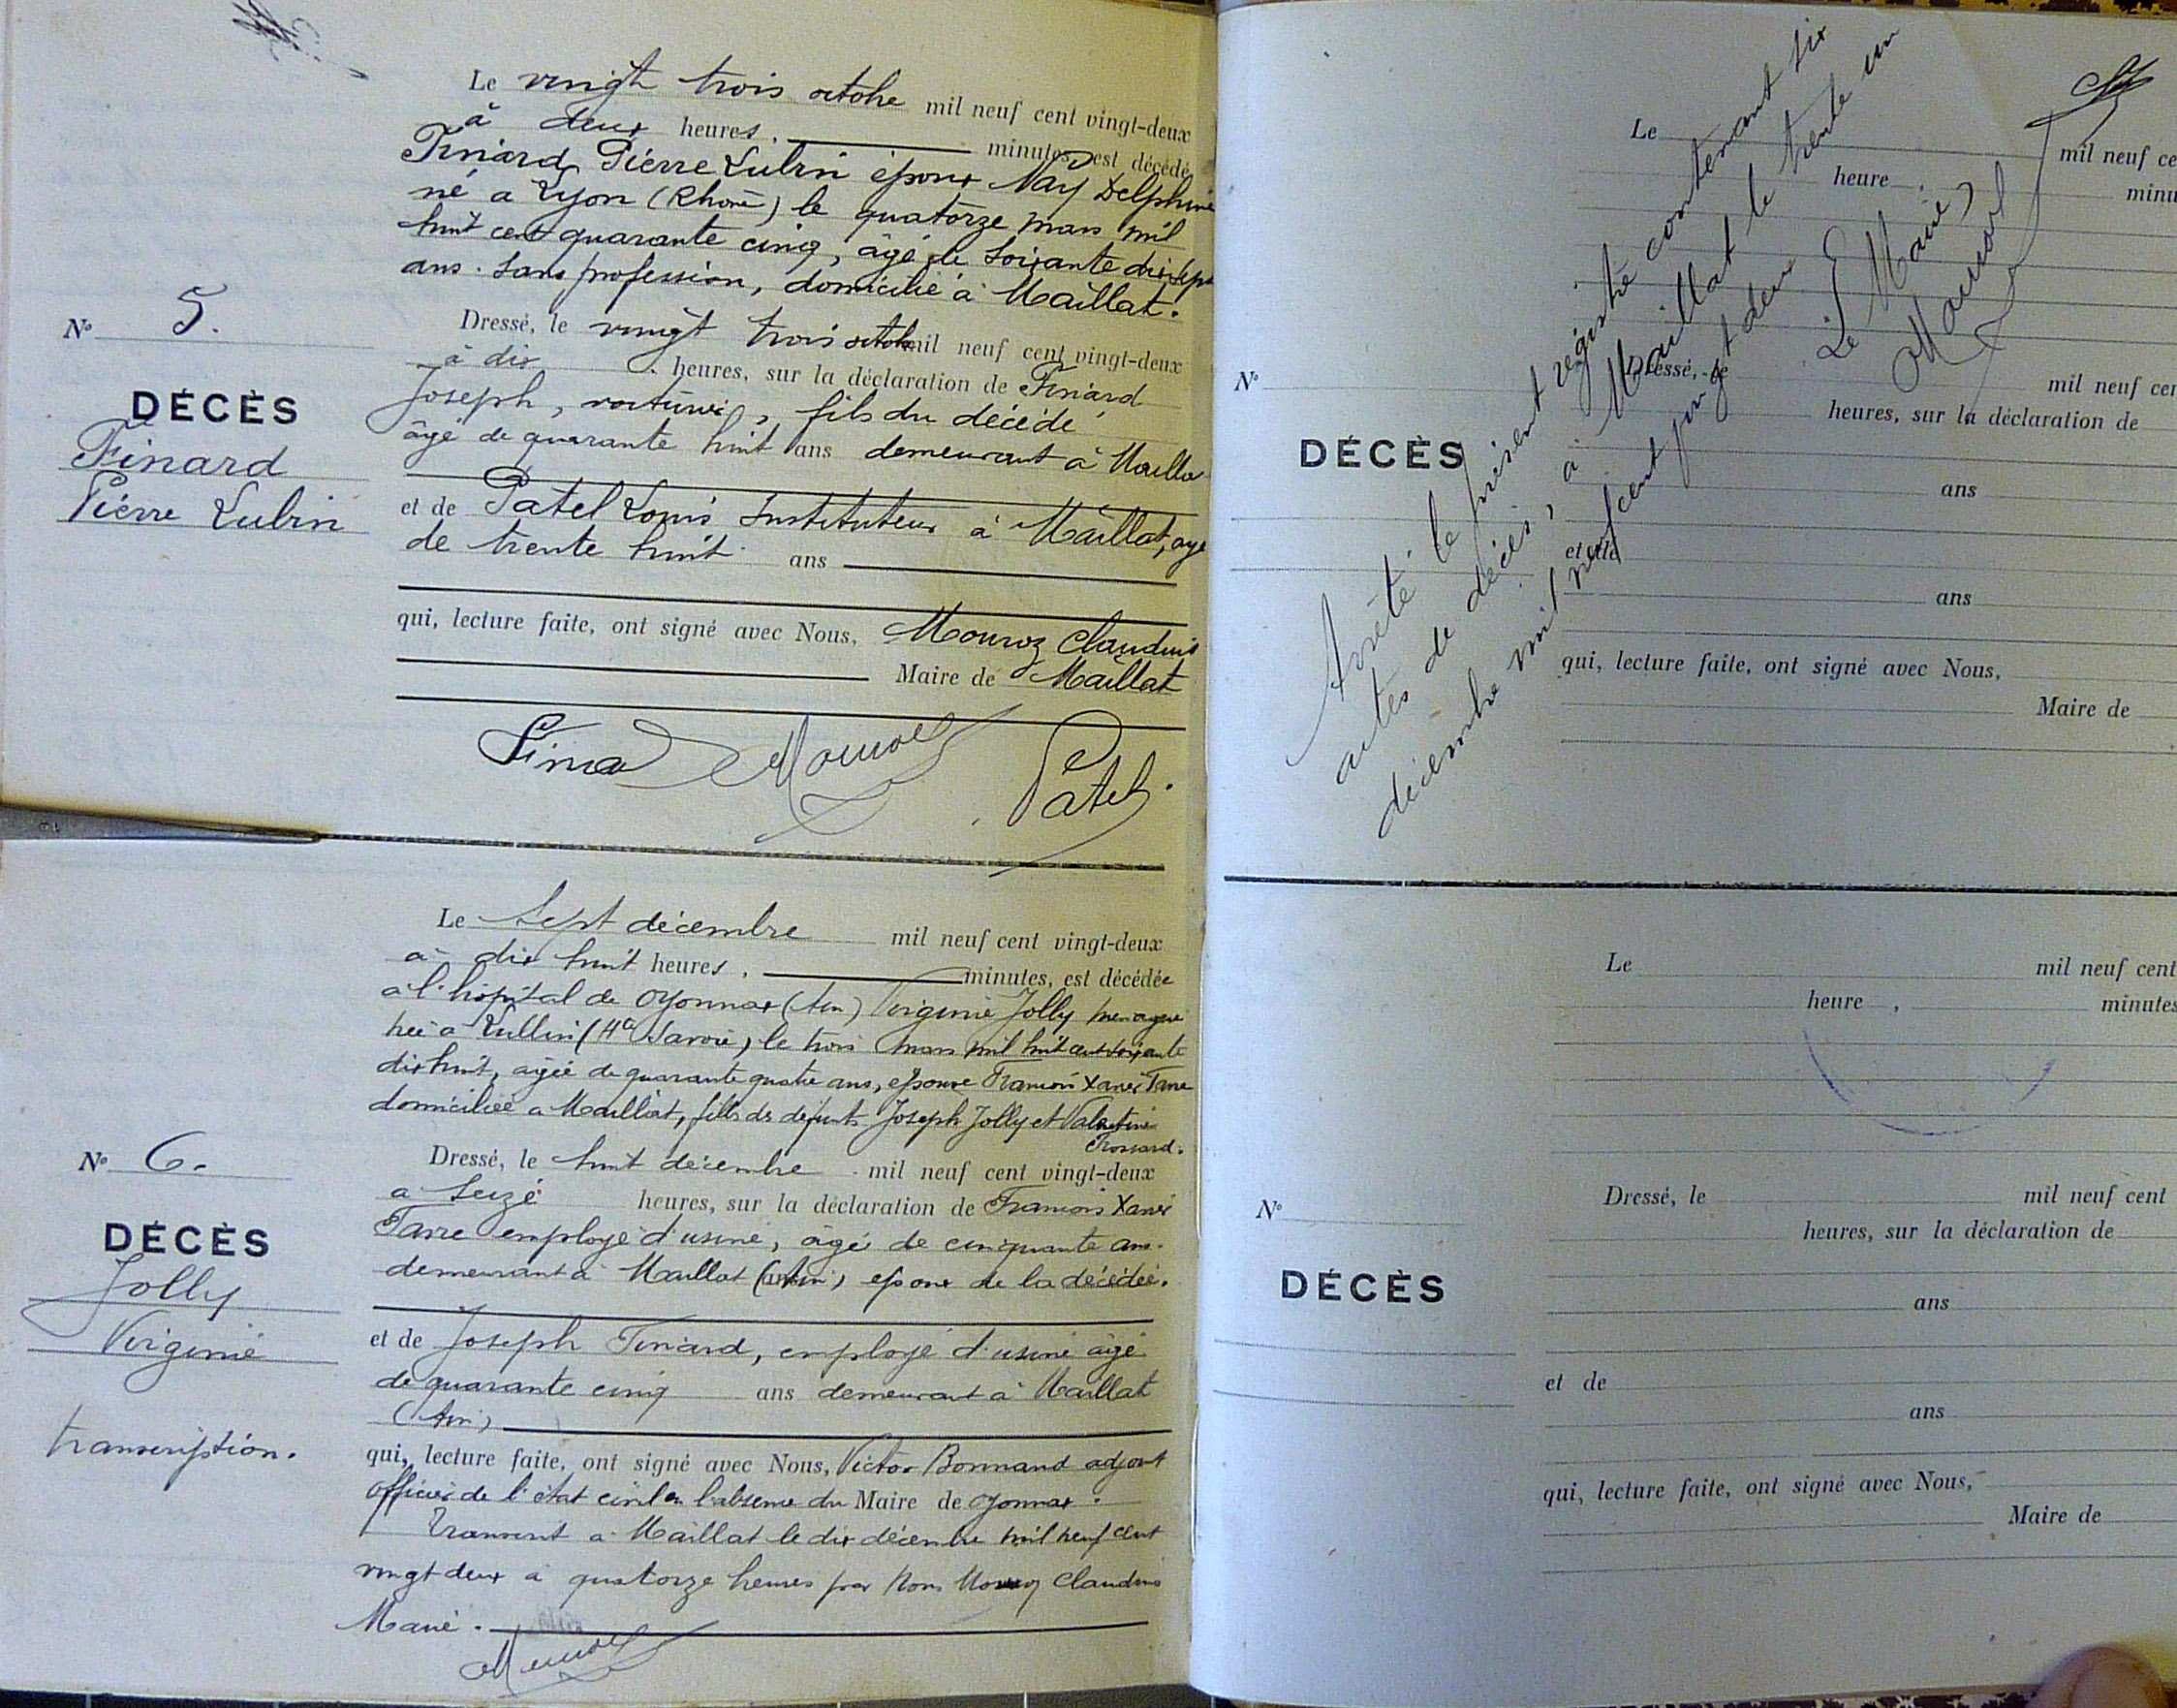 Le vingt trois octobre mil neuf cent vingt-deux
à deux heures, minutes, est décédé
Finard Pierre Lubin époux Nay Delphine
né à Lyon (Rhône) le quatorze mars mil
huit cent quarante cinq, âgé de soixante dix sept
ans. Sans profession, domicilié à Maillat.
Nº 5.
DÉCÈS
Finard
Pierre Lubin
Dressé, le vingt trois octobre mil neuf cent vingt-deux
à dix heures, sur la déclaration de Finard
Joseph, voiturier, fils du décédé
âgé de quarante huit ans demeurant à Maillat
et de Patel Louis Instituteur à Maillat, âgé
de trente huit ans
qui, lecture faite, ont signé avec Nous, Mouroz Claudius
Maire de Maillat
Finard Mouroz Patel
Le Sept décembre mil neuf cent vingt-deux
à dix huit heures, minutes, est décédée
à l'hôpital de Oyonnax (Ain) Virginie Jolly ménagère
née à Lullin (Hte Savoie) le trois mars mil huit cent soixante
dix huit, âgée de quarante quatre ans, épouse François Xavier Favre
domiciliée à Maillat, fille de défunts Joseph Jolly et Valentine
Frossard.
Nº 6.
DÉCÈS
Jolly
Virginie
transcription.
Dressé, le huit décembre mil neuf cent vingt-deux
à Seize heures, sur la déclaration de François Xavier
Favre employé d'usine, âgé de cinquante ans
demeurant à Maillat (Ain) époux de la décédée.
et de Joseph Finard, employé d'usine âgé
de quarante cinq ans demeurant à Maillat
(Ain)
qui, lecture faite, ont signé avec Nous, Victor Bonnand adjoint
officier de l'état civil en l'absence du Maire de Oyonnax.
Transcrit à Maillat le dix décembre mil neuf cent
vingt deux à quatorze heures par Nous Mouroz Claudius
Maire.
Mouroz
Le mil neuf ce
heure, minu
Arrêté le présent régistre contenant six
actes de décès, à Maillat le trente un
décembre mil neuf cent vingt deux
Le Maire,
Mouroz
Nº
DÉCÈS
Dressé, le mil neuf cen
heures, sur la déclaration de
ans
et de
ans
qui, lecture faite, ont signé avec Nous,
Maire de
Le mil neuf cent
heure, minutes
Nº
DÉCÈS
Dressé, le mil neuf cent
heures, sur la déclaration de
ans
et de
ans
qui, lecture faite, ont signé avec Nous,
Maire de